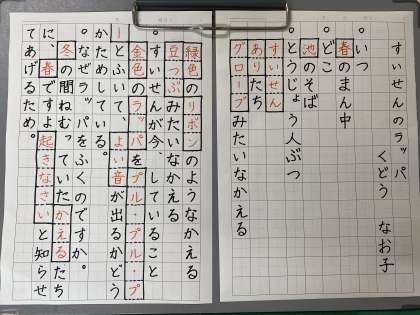 すいせんのラッパ
くどう なお子
。いつ
春のまん中
。どこ
池のそば
。とうじょう人ぶつ
すいせん
ありたち
グローブみたいなかえる
緑色のリボンのようなかえる
豆つぶみたいなかえる
。すいせんが今、していること
金色のラッパをプル・プル・プ
ーとふいて、よい音が出るかどう
かためしている。
。なぜラッパをふくのですか。
冬の間ねむっていたかえるたち
に、春ですよ起きなさいと知らせ
てあげるため。